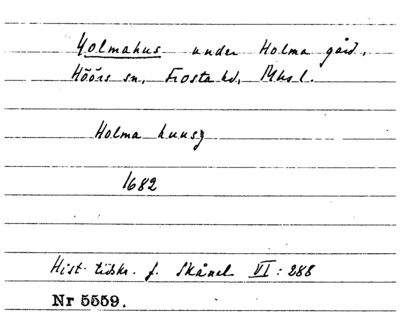 Holmahus under Holma gård,
Höörs sn, Frosta hd, Mhs l.
Holma huusz
1682
Hist. tidskr. f. Skånel VI : 288
Nr 5559.